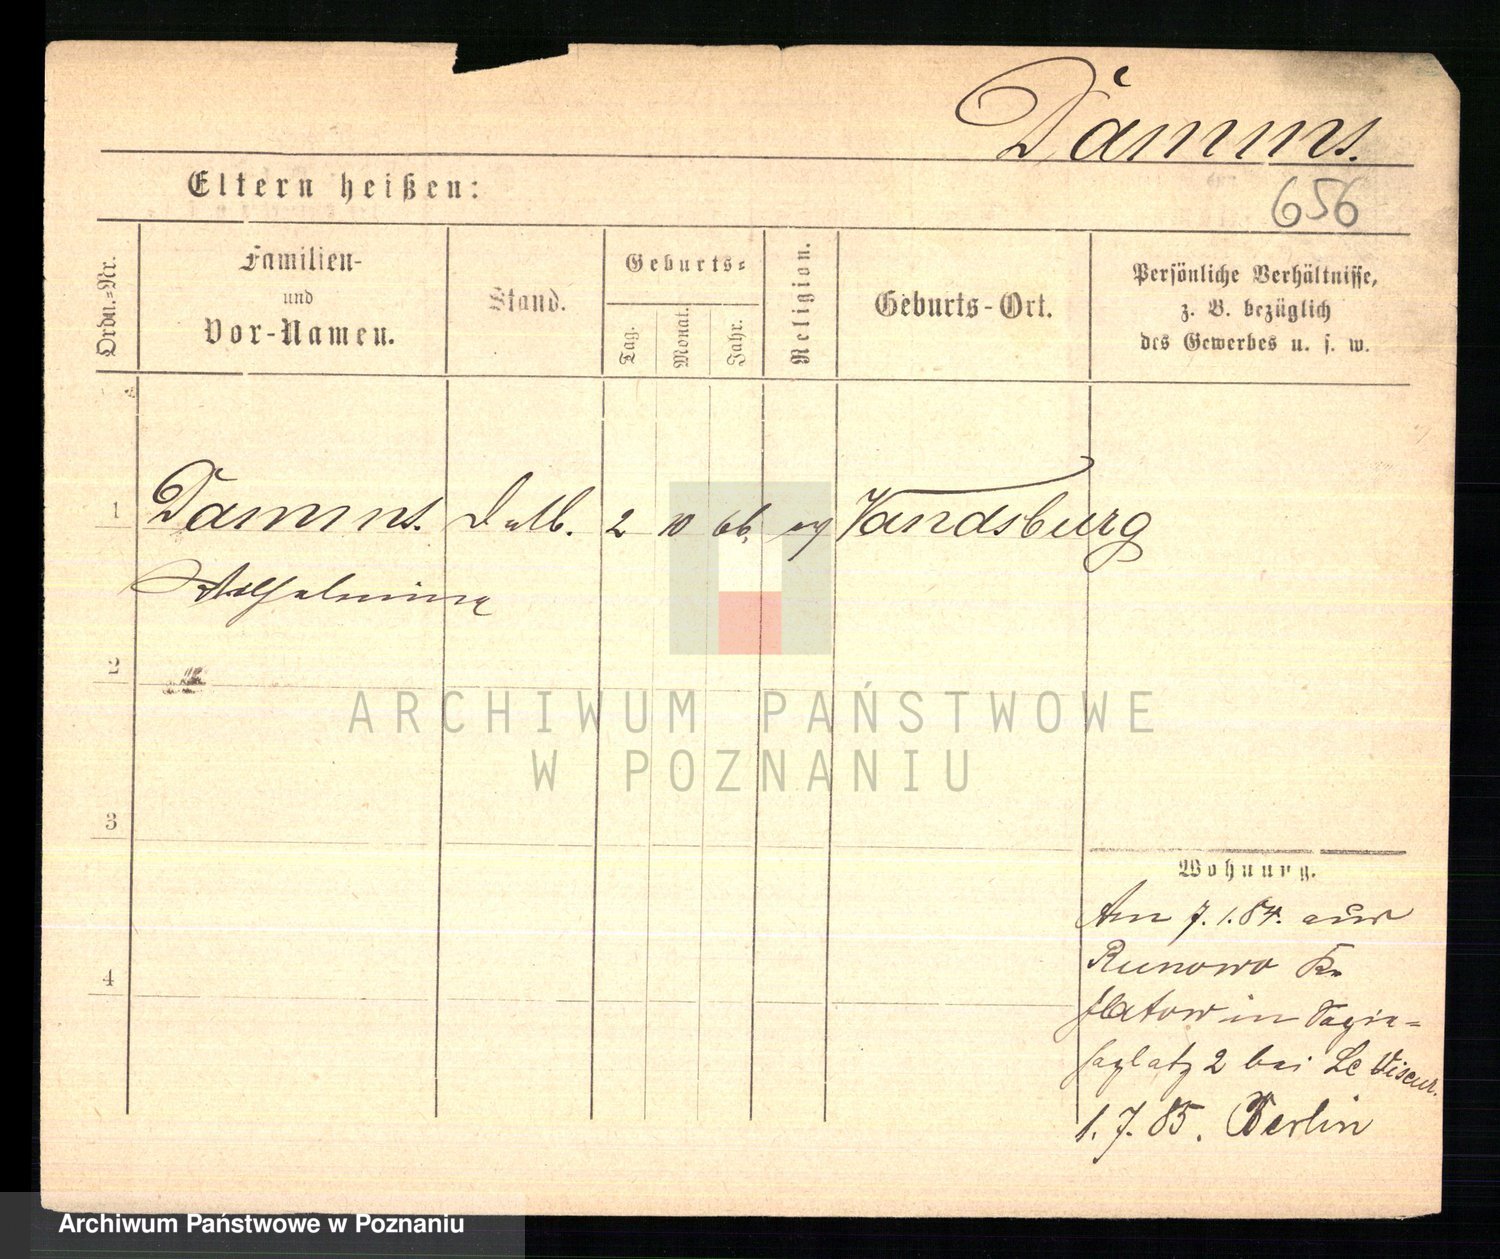 Damms.
656
Eltern heißen:
Ordn.-Nr.
Familien-
und
Vor-Namen.
Stand.
Geburts-
Tag.
Monat.
Jahr.
Religion.
Geburts-Ort.
Persönliche Verhältnisse,
z. B. bezüglich
des Gewerbes u. s. w.
1
Damms. 2 10 66. ev Vandsburg
Wilhelmine
2
ARCHIWUM PAŃSTWOWE
W POZNANIU
3
Wohnung.
Am 7.1.84. aus
Runowo Kr
Flatow in
2 bei Le Viseur.
4
1.7.85. Berlin
Archiwum Państwowe w Poznaniu